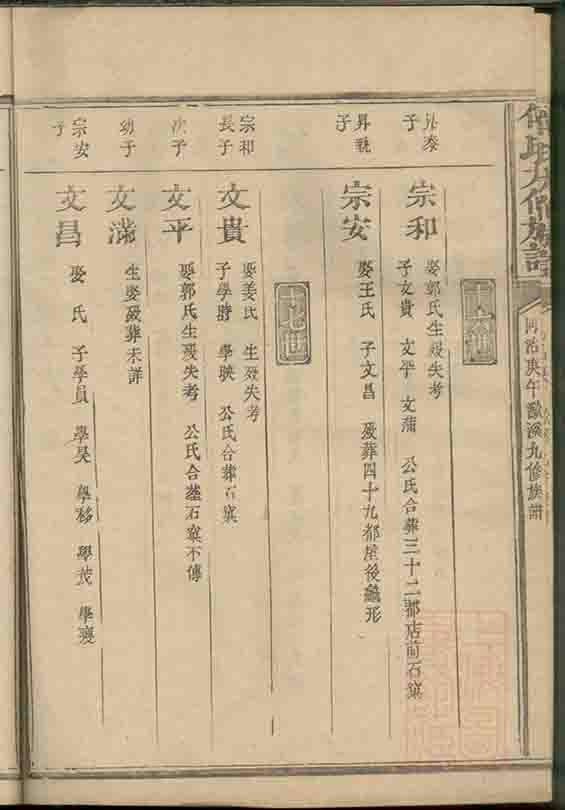 氏九修族譜
同治庚午 溪九修族譜
十六世
昇泰子
宗和
娶郭氏生歿失考
子文貴 文平 文滿 公氏合葬三十二都店前石窠
昇 子
宗安
娶王氏 子文昌 歿葬四十九都屋後 形
十七世
宗和長子
文貴
娶姜氏 生歿失考
子學時 學映 公氏合葬石窠
次子
文平
娶郭氏生歿失考 公氏合葬石窠不傳
幼子
文滿
生娶歿葬未詳
宗安子
文昌
娶 氏 子學員 學昊 學移 學茂 學